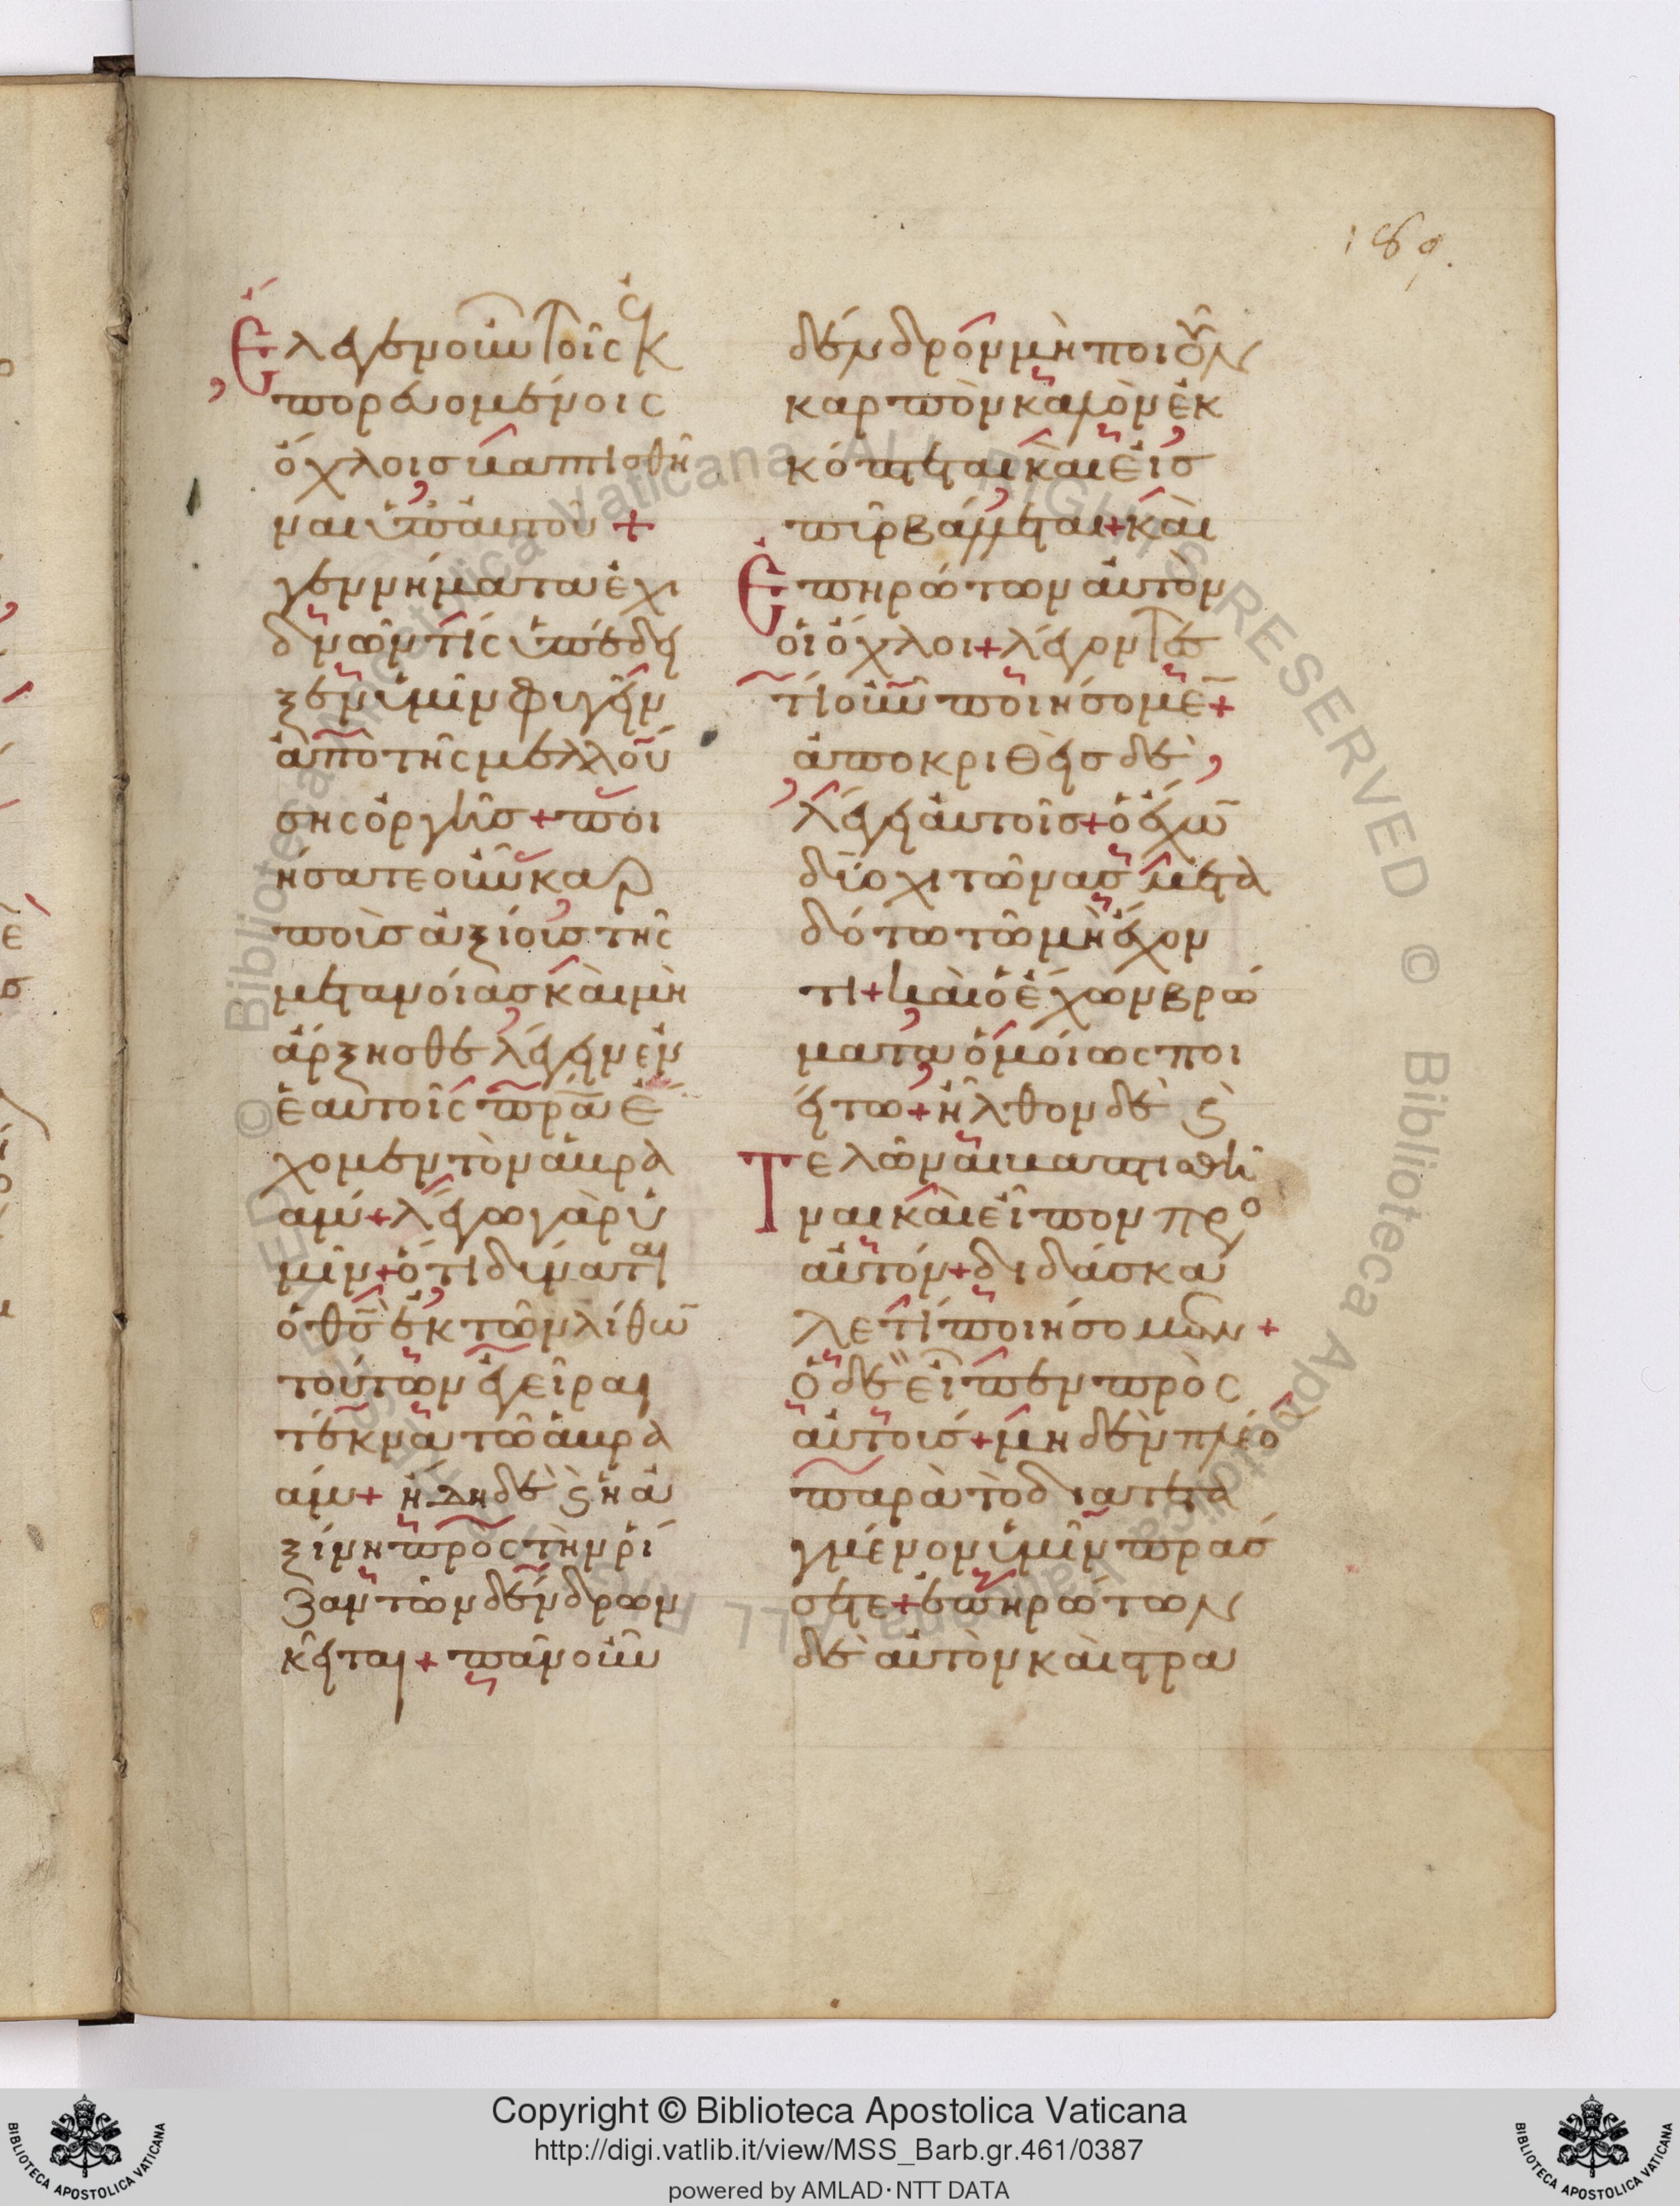 189.
Ἔλεγεν οὖν τοῖς ἐκ
πορευομένοις
ὄχλοισ βαπτισθῆ
ναι ὑπ' αὐτοῦ +
γεννήματα ἐχι
δνῶν τίς ὑπέδει
ξεν ὑμῖν φυγεῖν
ἀπὸ τῆς μελλού
σης ὀργῆσ + ποι
ήσατε οὖν καρ
ποὺσ ἀξίουσ τῆς
μετανοίασ καὶ μὴ
ἄρξησθε λέγειν ἐν
ἑαυτοῖς πρ̅α ἔ
χομεν τὸν ἀβρα
αμ + λέγω γὰρ ὑ
μῖν + ὅτι δύναται
ὁ θ̅σ ἐκ τῶν λίθω̅
τούτων ἐγεῖραι
τέκνα τῶ ἀβρα
άμ + ἤδη δὲ ϛ ἡ ἀ
ξίνη πρὸς τὴν ῥί
ζαν τῶν δένδρων
κεῖται + πᾶν οὖν
δένδρον μὴ ποιοῦν
καρπὸν καλὸν ἐκ
κόπτεται καὶ εἰσ
πῦρ βάλλεται + καὶ
Ἐπηρώτων αὐτὸν
οἱ ὄχλοι + λέγοντεσ
τί οὖν ποιήσομε̅ +
ἀποκριθεὶσ δὲ
λέγει αὐτοῖσ + ὁ ἔχω̅
δύο χιτῶνασ μετα
δότω τῶ μὴ ἔχον
τι + καὶ ὁ ἔχων βρώ
ματα ὁμοίως ποι
είτω + ἦλθον δὲ ϛ
Τελῶναι βαπτισθῆ
ναι καὶ εἶπον προ
αὐτόν + διδάσκα
λε τί ποιήσομεν +
ὁ δὲ εἶπεν πρὸς
αὐτούσ + μηδὲν πλέο
παρὰ τὸ διατετα
γμένον ὑμῖν πρασ
σετε + ἐπηρώτων
δὲ αὐτὸν καὶ στρα
© Biblioteca Apostolica Vaticana ALL RIGHTS RESERVED © Biblioteca Apostolica Vaticana ALL RIGHTS RESERVED
Copyright © Biblioteca Apostolica Vaticana
http://digi.vatlib.it/view/MSS_Barb.gr.461/0387
powered by AMLAD·NTT DATA
BIBLIOTECA APOSTOLICA VATICANA
BIBLIOTECA APOSTOLICA VATICANA